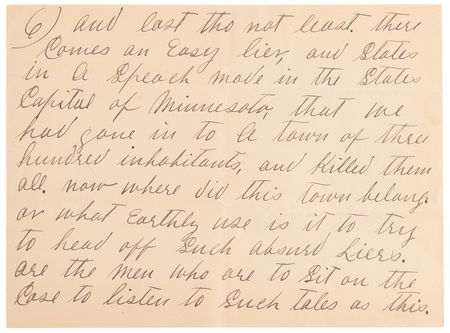 6) and last tho not least. there
Comes an Easy lier, and States
in A Speach made in the States
Capital of Minnesota, that we
had gone in to A town of three
hundred inhabitants, and Killed them
all. now where did this town belong.
or what Earthly use is it to try
to head off Such absurd Liers.
are the men who are to Sit on the
Case to listen to Such tales as this.